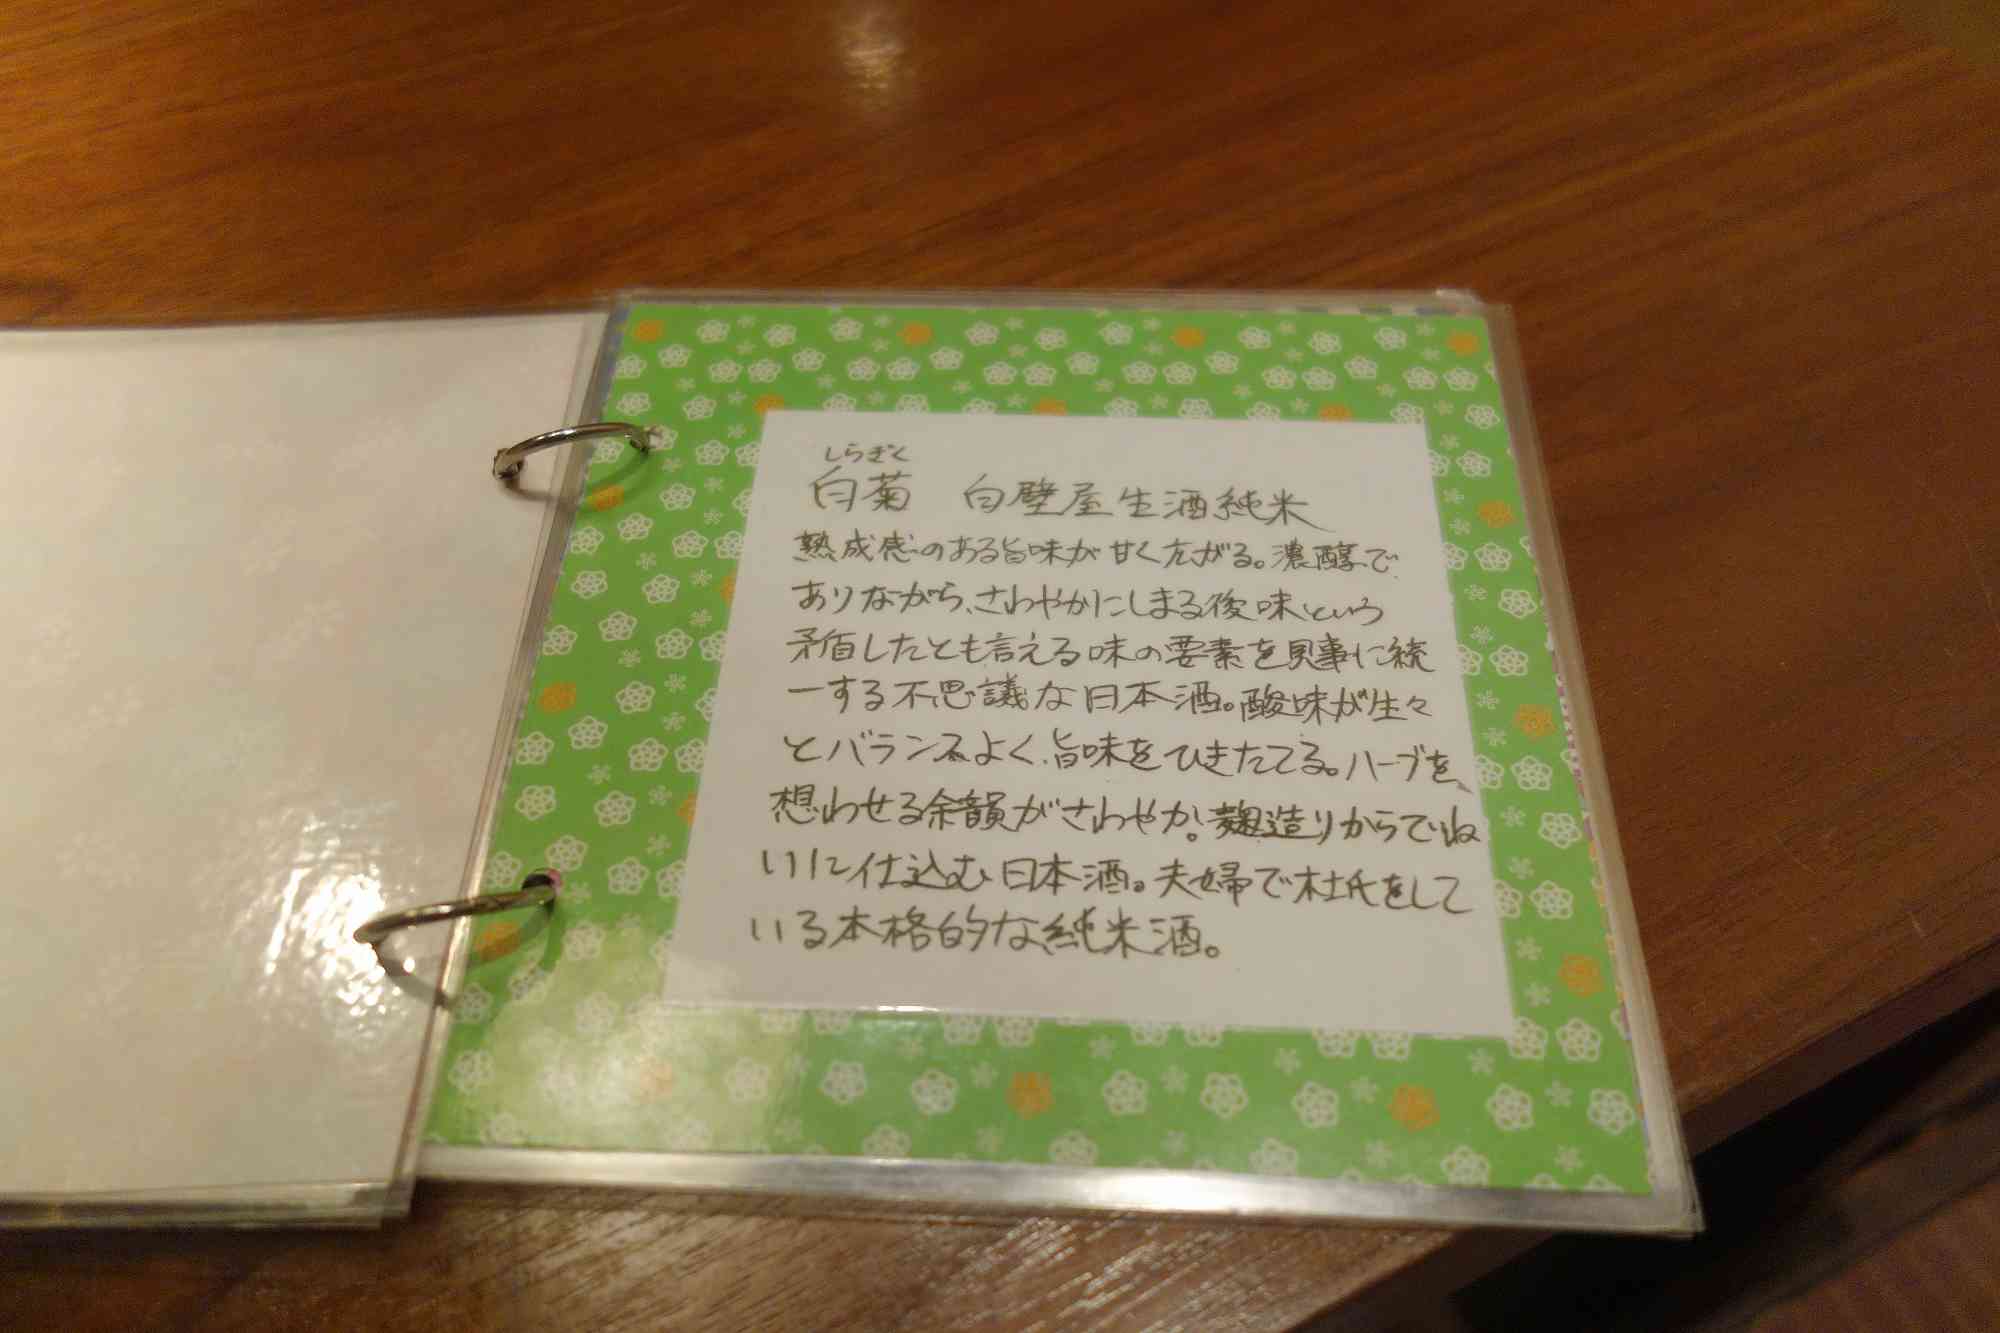 しらぎく
白菊 白壁屋生酒純米
熟成感のある旨味が甘く広がる。濃醇で
ありながら、さわやかにしまる後味という
矛盾したとも言える味の要素を見事に統
一する不思議な日本酒。酸味が生々
とバランスよく、旨味をひきたてる。ハーブを、
想わせる余韻がさわやか。麹造りからていね
いに仕込む日本酒。夫婦で杜氏をして
いる本格的な純米酒。